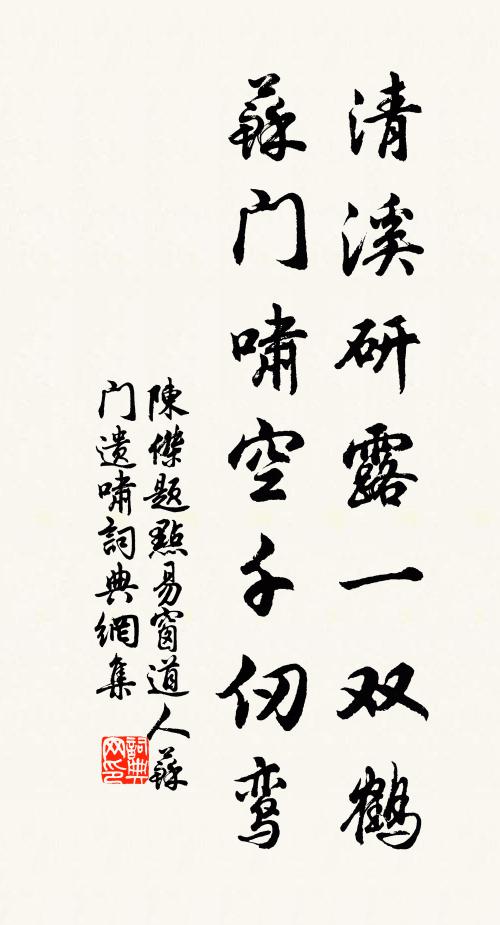 清溪研露一双鹤
蘇门啸空千仞鸾
陳傑題點易窗道人蘇
门遗啸詞典網集
詞典网印